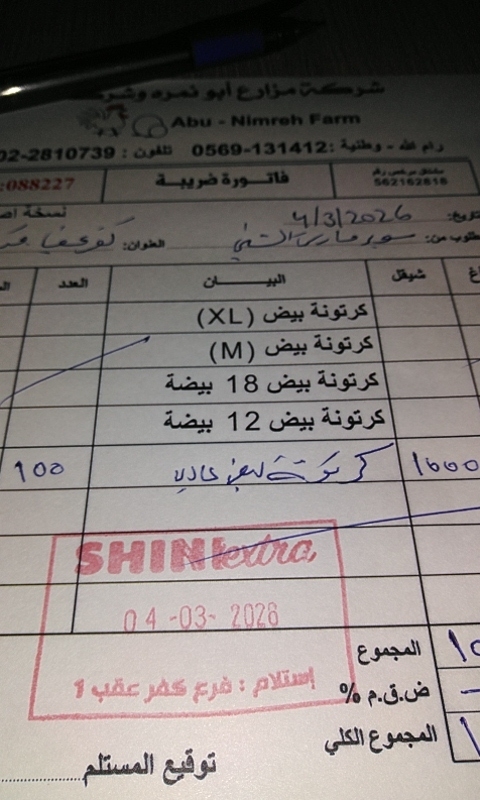 شركة مزارع أبو نمره وشر
Abu - Nimreh Farm
رام الله - وطنية : 0569-131412 تلفون : 02-2810739
562162616
فاتورة ضريبية
088227
نسخة اص
4/3/2026
سوبر ماركت الشني
العنوان: كفر عقب
شيقل البيـــــان العدد
كرتونة بيض (XL)
كرتونة بيض (M)
كرتونة بيض 18 بيضة
كرتونة بيض 12 بيضة
1600 كرتونة بيض عادي 100
SHINI extra
04-03-2026
إستلام : فرع كفر عقب 1
المجموع
ض.ق.م %
المجموع الكلي
توقيع المستلم